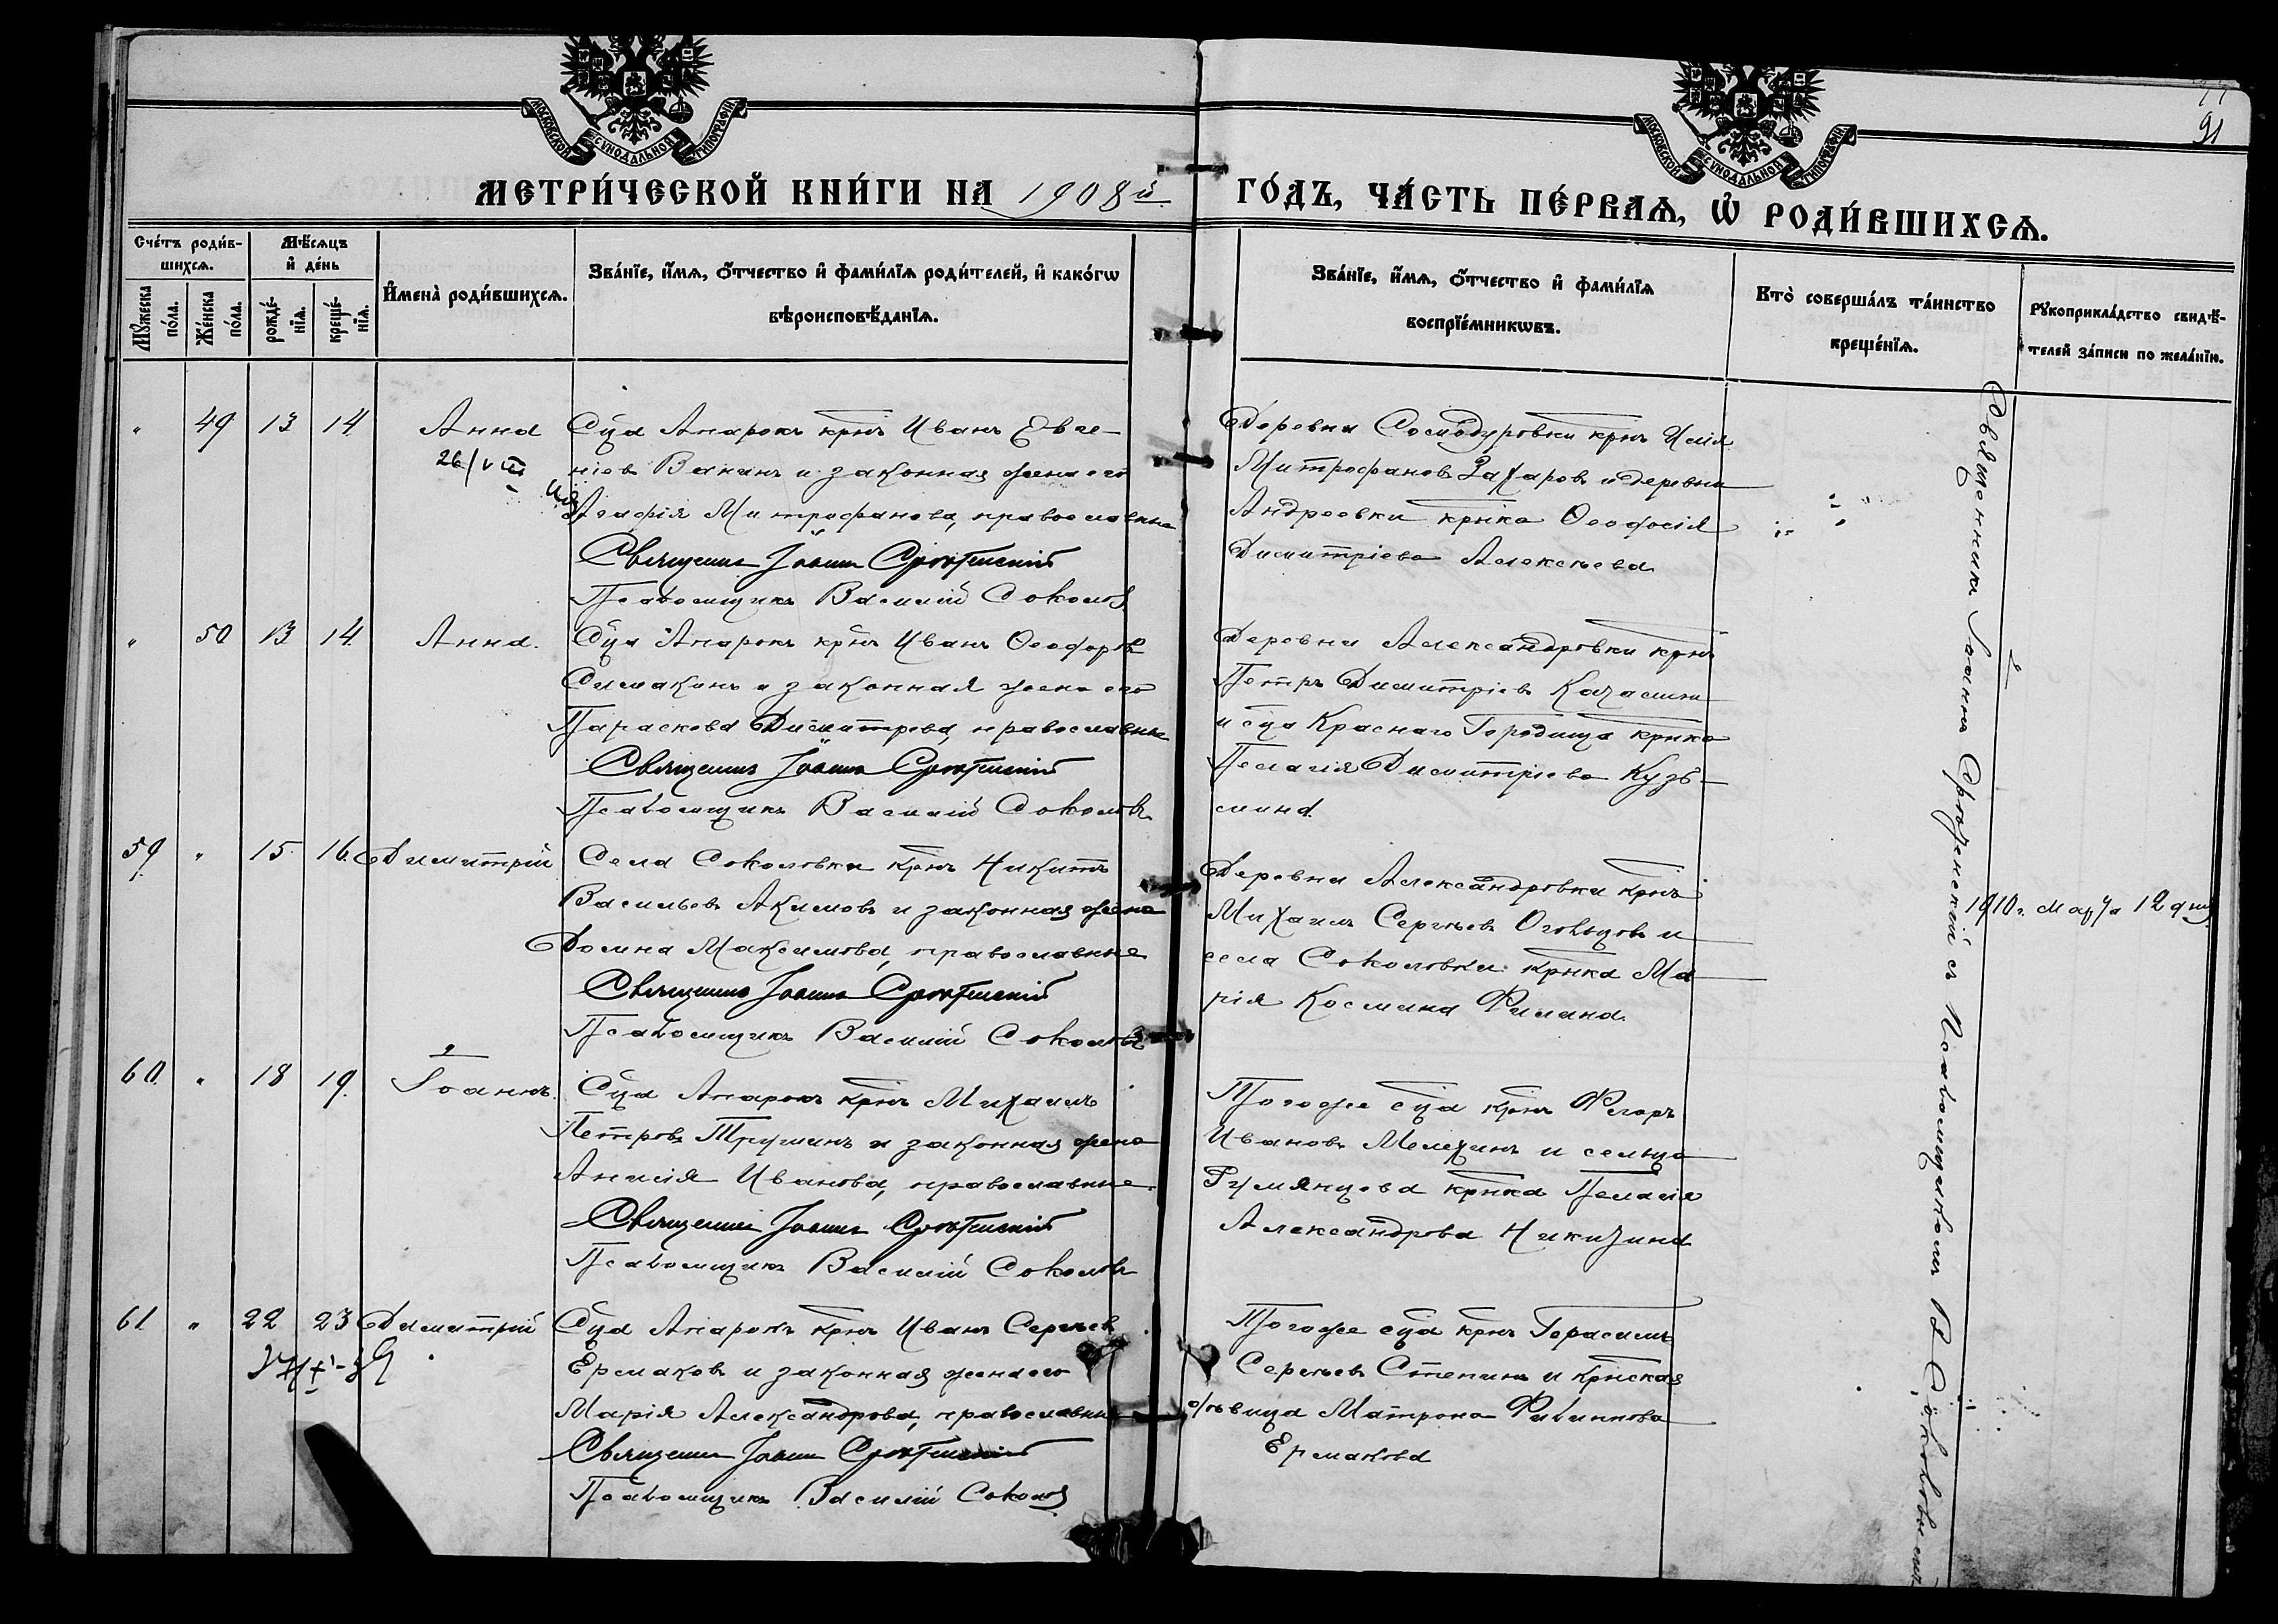 91
МОСКОВСКОЙ СѴНОДАЛЬНОЙ ТИПОГРАФІИ
МОСКОВСКОЙ СѴНОДАЛЬНОЙ ТИПОГРАФІИ
МЕТРИ́ЧЕСКОЙ КНИ́ГИ НА 1908й
ГО́ДЪ, ЧА́СТЬ ПЕ́РВАѦ, Ѡ҆ РОДИ́ВШИХСѦ.
Сче́тъ роди́в-
шихсѧ.
Мꙋ́жеска по́ла.
Же́нска по́ла.
Мѣ́сѧцъ
и҆ де́нь
рожде́-
нїѧ.
креще́-
нїѧ.
И҆мена̀ роди́вшихсѧ.
Зва́нїе, и҆́мѧ, ѻ҆́тчество и҆ фами́лїѧ роди́телей, и҆ како́гѡ
вѣроисповѣ́данїѧ.
Зва́нїе, и҆́мѧ, ѻ҆́тчество и҆ фами́лїѧ
воспрїе́мникѡвъ.
Кто̀ соверша́лъ та́инство
креще́нїѧ.
Рꙋкоприкла́дство свидѣ́-
телей за́писи по жела́нїю.
" 49 13 14 Анна
26/VIII
Сца Апарокъ крнъ Иванъ Евге-
ніевъ Ванинъ и законная жена его
Агафія Митрофанова, православные
Священникъ Іоаннъ Срѣтенскій
Псаломщикъ Василій Соколовъ
Деревни крнъ Илія
Митрофановъ Захаровъ и деревни
Андреевки крнка Ѳеодосія
Димитріева Алексѣева
" 50 13 14 Анна.
Сца Апарокъ крнъ Иванъ Ѳеодоровъ
Симакинъ и законная жена его
Параскева Димитрева, православные
Священникъ Іоаннъ Срѣтенскій
Псаломщикъ Василій Соколовъ
Деревни Александровки крнъ
Петръ Димитріевъ
и сца Краснаго Городища крнка
Пелагія Димитріева Кузь-
мина.
59 " 15 16. Димитрій
Села Соколовки крнъ Никита
Васильевъ Акимовъ и законная жена
Домна Максимова, православные
Священникъ Іоаннъ Срѣтенскій
Псаломщикъ Василій Соколовъ
Деревни Александровки крнъ
Михаилъ Сергѣевъ Огольцовъ и
села Соколовки крнка Ма-
рія Космина Филина.
1910 г. 12 дня
60. " 18 19. Іоаннъ.
Сца Апарокъ крнъ Михаилъ
Петровъ Трушинъ и законная жена
Анисія Иванова, православные.
Священникъ Іоаннъ Срѣтенскій
Псаломщикъ Василій Соколовъ
Тогоже сца крнъ
Ивановъ Мелехинъ и сельца
Румянцева крнка Пелагія
Александрова Никихина
61 " 22 23 Димитрій
Сца Апарокъ крнъ Иванъ Сергѣевъ
Ермаковъ и законная жена его
Марія Александрова, православные
Священникъ Іоаннъ Срѣтенскій
Псаломщикъ Василій Соколовъ
Тогоже сца крнъ Герасимъ
Сергѣевъ Степинъ и крнская
дѣвица Матрона Филиппова
Ермакова
Священникъ Іоаннъ Срѣтенскій съ Псаломщикомъ В Соколовымъ